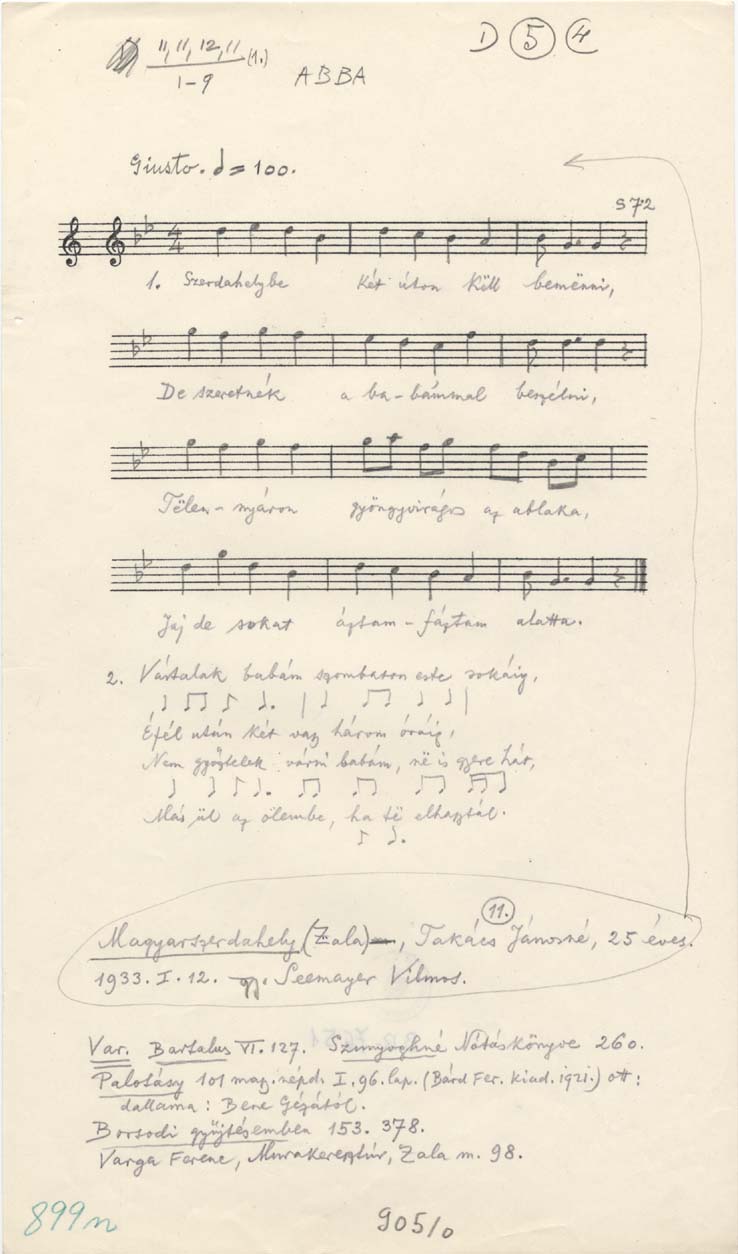 11, 11, 12, 11 (1.)
1-9
ABBA
D 5 4
Giusto. = 100.
572
4
4
1. Szerdahelybe Két úton Këll bemënni,
De szeretnék a ba-bámmal beszélni,
Télen-nyáron gyöngyvirágos az ablaka,
Jaj de sokat áztam-fáztam alatta.
2. Vártalak babám szombaton este sokáig,
Éfél után két vaz három óráig,
Nem győztelek várni babám, në is gyere hát,
Más ül az ölembe, ha të elhagytál.
11.
Magyarszerdahely (Zala), Takács Jánosné, 25 éves.
1933. I. 12. gy. Seemayer Vilmos.
Var. Bartalus VI. 127. Szunyoghné Nótáskönyve 260.
Palotásy 101 mag. népd. I. 96. lap. (Bárd Fer. kiad. 1921.) ott:
dallama: Bene Gézától.
Borsodi gyűjtésemben 153. 378.
Varga Ferenc, Murakeresztúr, Zala m. 98.
899n
905/0